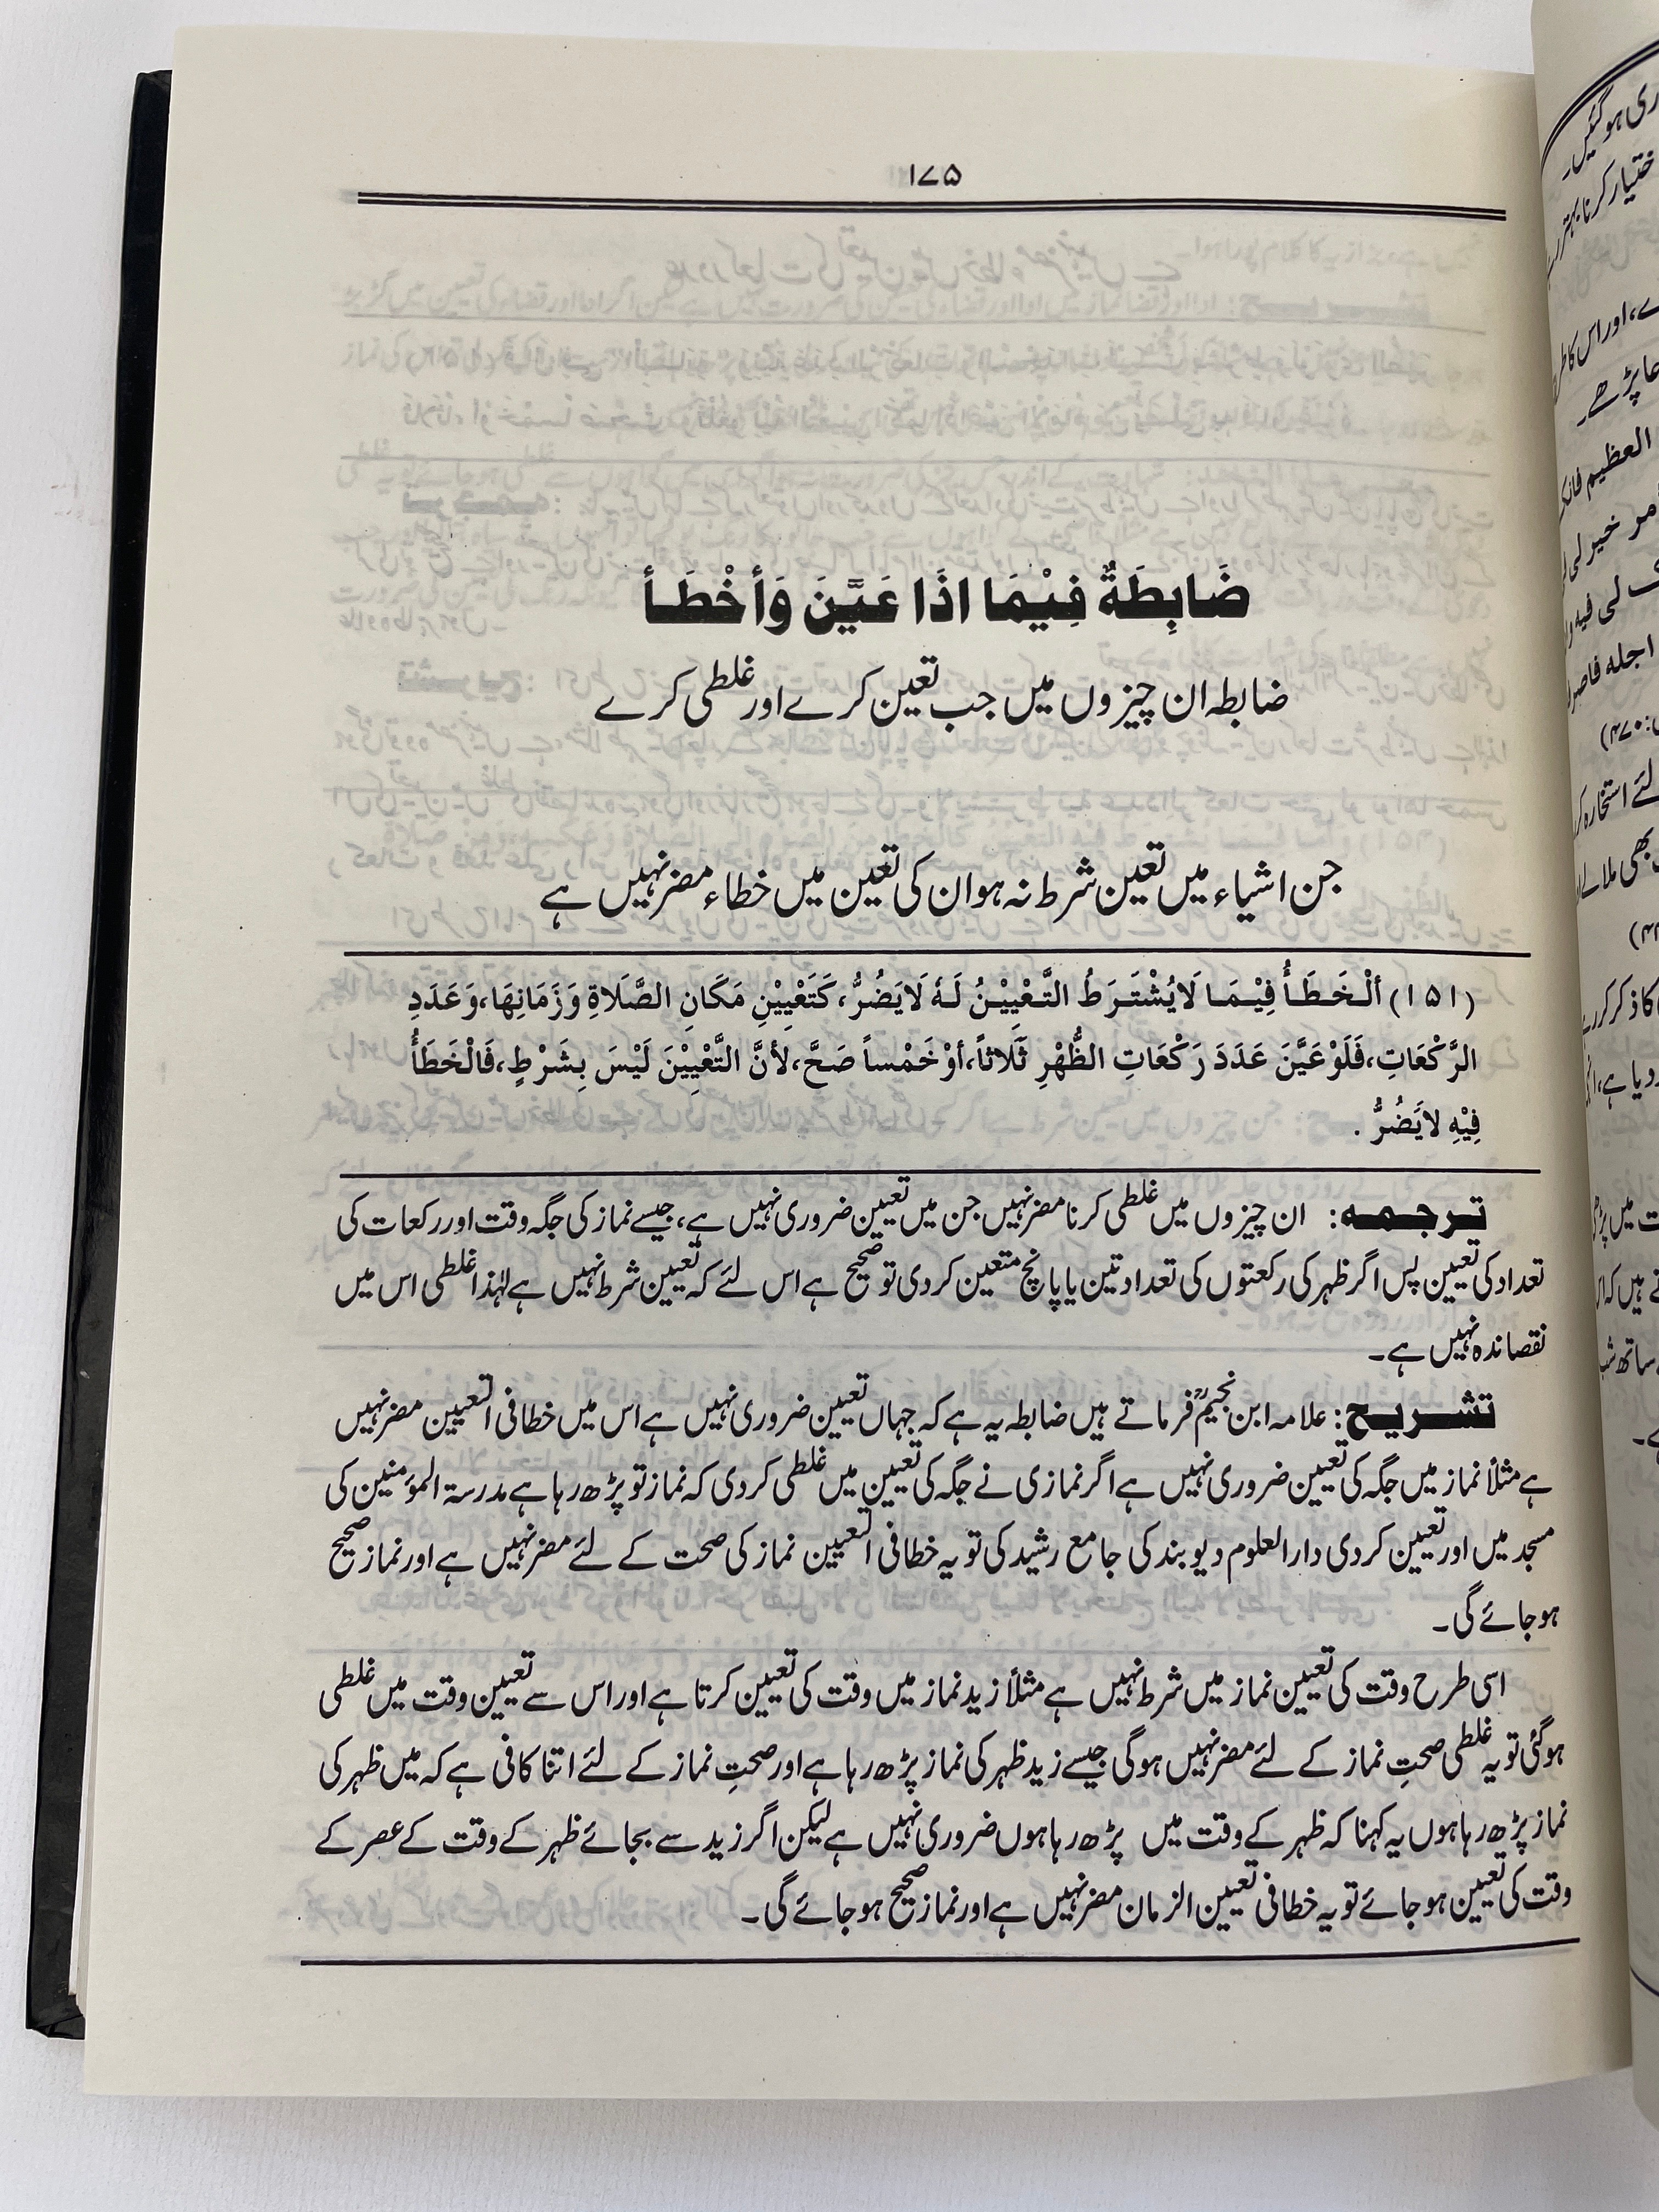 ۱۷۵
ضَابِطَةٌ فِيْمَا اذَا عَيَّنَ وَأخْطَأ
ضابطہ ان چیزوں میں جب تعین کرے اور غلطی کرے
جن اشیاء میں تعین شرط نہ ہو ان کی تعین میں خطاء مضر نہیں ہے
(۱۵۱) ألْخَطَأُ فِيْمَا لَايُشْتَرَطُ التَّعْيِيْنُ لَهُ لَايَضُرُّ، كَتَعْيِيْنِ مَكَانِ الصَّلَاةِ وَزَمَانِهَا، وَعَدَدِ
الرَّكْعَاتِ، فَلَوْ عَيَّنَ عَدَدَ رَكْعَاتِ الظُّهْرِ ثَلَاثاً، أوْ خَمْساً صَحَّ، لأنَّ التَّعْيِيْنَ لَيْسَ بِشَرْطٍ، فَالْخَطَأُ
فِيْهِ لايَضُرُّ .
ترجمہ: ان چیزوں میں غلطی کرنا مضر نہیں جن میں تعیین ضروری نہیں ہے، جیسے نماز کی جگہ وقت اور رکعات کی
تعداد کی تعیین پس اگر ظہر کی رکعتوں کی تعداد تین یا پانچ متعین کردی تو صحیح ہے اس لئے کہ تعیین شرط نہیں ہے لہٰذا غلطی اس میں
نقصاندہ نہیں ہے۔
تشریح: علامہ ابن نجیمؒ فرماتے ہیں ضابطہ یہ ہے کہ جہاں تعیین ضروری نہیں ہے اس میں خطا فی التعیین مضر نہیں
ہے مثلاً نماز میں جگہ کی تعیین ضروری نہیں ہے اگر نمازی نے جگہ کی تعیین میں غلطی کردی کہ نماز تو پڑھ رہا ہے مدرسۃ المؤمنین کی
مسجد میں اور تعیین کردی دارالعلوم دیوبند کی جامع رشید کی تو یہ خطا فی التعیین نماز کی صحت کے لئے مضر نہیں ہے اور نماز صحیح
ہوجائے گی۔
اسی طرح وقت کی تعیین نماز میں شرط نہیں ہے مثلاً زید نماز میں وقت کی تعیین کرتا ہے اور اس سے تعیین وقت میں غلطی
ہوگئی تو یہ غلطی صحتِ نماز کے لئے مضر نہیں ہوگی جیسے زید ظہر کی نماز پڑھ رہا ہے اور صحتِ نماز کے لئے اتنا کافی ہے کہ میں ظہر کی
نماز پڑھ رہا ہوں یہ کہنا کہ ظہر کے وقت میں پڑھ رہا ہوں ضروری نہیں ہے لیکن اگر زید سے بجائے ظہر کے وقت کے عصر کے
وقت کی تعیین ہوجائے تو یہ خطا فی تعیین الزمان مضر نہیں ہے اور نماز صحیح ہوجائے گی۔